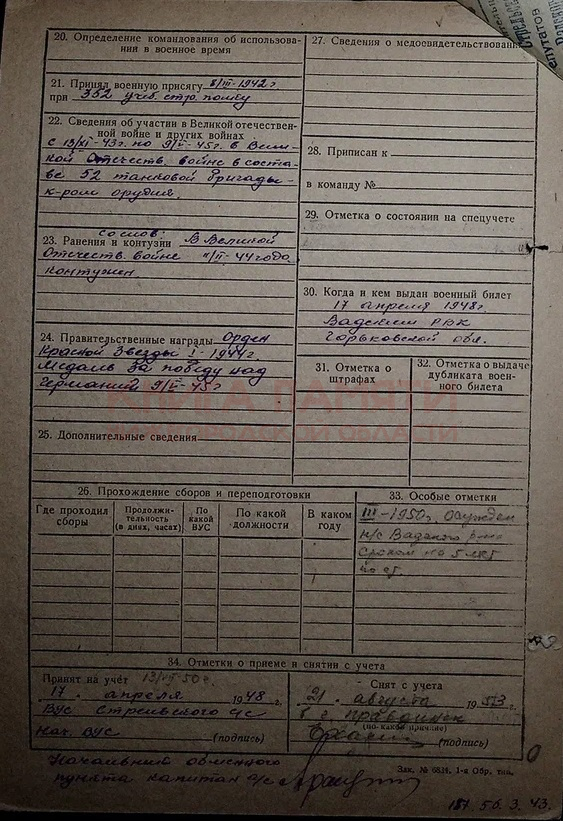 20. Определение командования об использова-
нии в военное время
21. Принял военную присягу 8/III-1942г
при 352 учеб. стр. полку
22. Сведения об участии в Великой отечествен-
ной войне и других войнах
с 13/XI-43г. по 9/V-45г. в Вели-
кой Отечеств. войне в соста-
ве 52 танковой бригады-
к-ром орудия.
со слов:
23. Ранения и контузии В Великой
Отечеств. войне /II-44 года
контужен
24. Правительственные награды Орден
Красной Звезды I-1944г.
Медаль За победу над
Германией 9/V-45г
25. Дополнительные сведения
26. Прохождение сборов и переподготовки
Где проходил
сборы
Продолжи-
тельность
(в днях, часах)
По
какой
ВУС
По какой
должности
В каком
году
27. Сведения о медосвидетельствовании
28. Приписан к
в команду №
29. Отметка о состоянии на спецучете
30. Когда и кем выдан военный билет
17 апреля 1948г.
Вадским РВК
Горьковской обл.
31. Отметка о
штрафах
32. Отметка о выдаче
дубликата воен-
ного билета
33. Особые отметки
III-1950г. Осужден
н/с Вадского
сроком на 5 лет
34. Отметки о приеме и снятии с учета
Принят на учёт
17 апреля 1948 г.
ВУС Стрелского с/с
Нач. ВУС (подпись)
Снят с учета
21 августа 1953 г.
в г. Правдинск
(по какой причине)
(подпись)
Начальник обменного
пункта капитан а/с
Зак. № 6824. 1-я Обр. тип.
187. 56. 3. 43.
КНИГА ПАМЯТИ
НИЖЕГОРОДСКОЙ ОБЛАСТИ